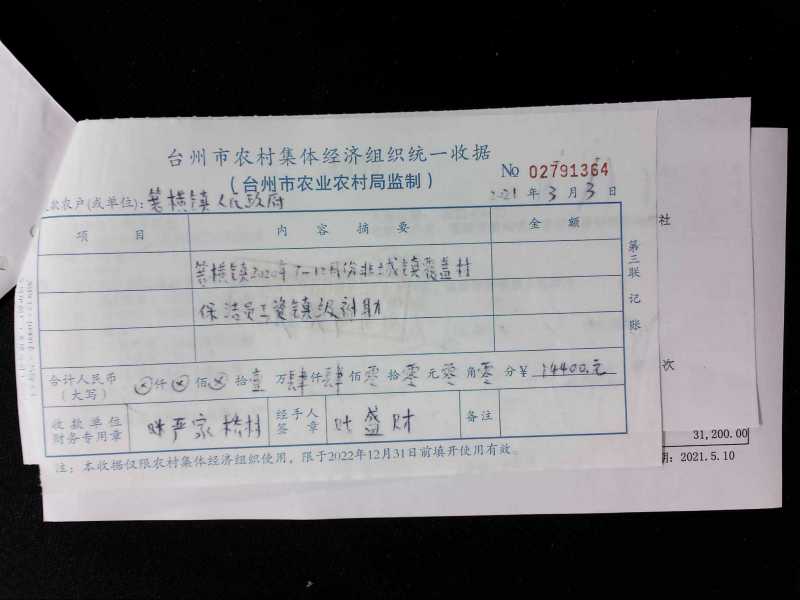 台州市农村集体经济组织统一收据
(台州市农业农村局监制)
No 02791364
款农户(或单位): 箬横镇人民政府
2021 年 3 月 3 日
项 目 内 容 摘 要 金 额
箬横镇2020年7-12月份非城镇覆盖村
保洁员工资镇级补助
第三联 记账
合计人民币(大写) ⊗仟⊗佰⊗拾壹万肆仟肆佰零拾零元零角零分 ¥ 14400.元
收款单位财务专用章 严家桥村 经手人签章 叶盛财 备注
注: 本收据仅限农村集体经济组织使用，限于2022年12月31日前填开使用有效。
社
次
31,200.00
期: 2021.5.10